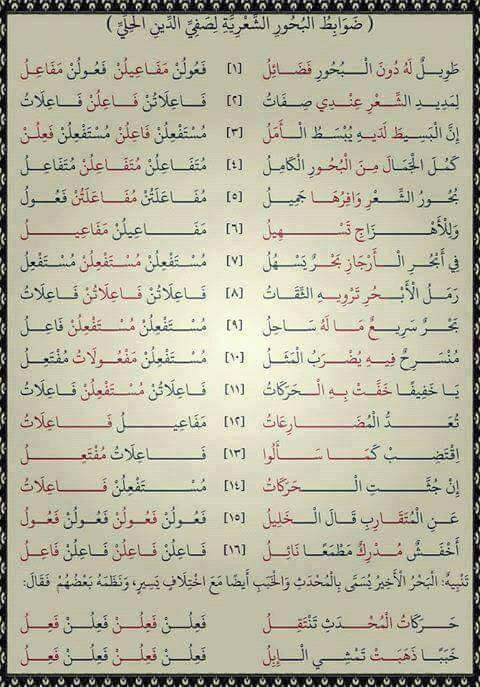 ( ضَوَابِطُ البُحُورِ الشِّعْرِيَّةِ لِصَفِيِّ الدِّينِ الْحِلِّيِّ )
طَوِيلٌ لَهُ دُونَ الْبُحُورِ فَضَائِلُ [١] فَعُولُنْ مَفَاعِيلُنْ فَعُولُنْ مَفَاعِلُ
لِمَدِيدِ الشِّعْرِ عِنْدِي صِفَاتُ [٢] فَاعِلَاتُنْ فَاعِلُنْ فَاعِلَاتُ
إِنَّ الْبَسِيطَ لَدَيهِ يُبْسَطُ الْأَمَلُ [٣] مُسْتَفْعِلُنْ فَاعِلُنْ مُسْتَفْعِلُنْ فَعِلُنْ
كَمُلَ الْجَمَالُ مِنَ الْبُحُورِ الْكَامِلُ [٤] مُتَفَاعِلُنْ مُتَفَاعِلُنْ مُتَفَاعِلُ
بُحُورُ الشِّعْرِ وَافِرُهَا جَمِيلُ [٥] مُفَاعَلَتُنْ مُفَاعَلَتُنْ فَعُولُ
وَلِلْأَهْزَاجِ تَسْهِيلُ [٦] مَفَاعِيلُنْ مَفَاعِيلُ
فِي أَبْحُرِ الْأَرْجَازِ بَحْرٌ يَسْهُلُ [٧] مُسْتَفْعِلُنْ مُسْتَفْعِلُنْ مُسْتَفْعِلُ
رَمَلُ الْأَبْحُرِ تَرْوِيهِ الثِّقَاتُ [٨] فَاعِلَاتُنْ فَاعِلَاتُنْ فَاعِلَاتُ
بَحْرٌ سَرِيعٌ مَا لَهُ سَاحِلُ [٩] مُسْتَفْعِلُنْ مُسْتَفْعِلُنْ فَاعِلُ
مُنْسَرِحٌ فِيهِ يُضْرَبُ الْمَثَلُ [١٠] مُسْتَفْعِلُنْ مَفْعُولَاتُ مُفْتَعِلُ
يَا خَفِيفًا خَفَّتْ بِهِ الْحَرَكَاتُ [١١] فَاعِلَاتُنْ مُسْتَفْعِلُنْ فَاعِلَاتُ
تُعَدُّ الْمُضَارِعَاتُ [١٢] مَفَاعِيلُ فَاعِلَاتُ
اِقْتَضِبْ كَمَا سَأَلُوا [١٣] فَاعِلَاتُ مُفْتَعِلُ
إِنْ جُثَّتِ الْحَرَكَاتُ [١٤] مُسْتَفْعِلُنْ فَاعِلَاتُ
عَنِ الْمُتَقَارِبِ قَالَ الْخَلِيلُ [١٥] فَعُولُنْ فَعُولُنْ فَعُولُنْ فَعُولُ
أَخْفَشُ مُدْرِكٌ مَطْمَعًا نَائِلُ [١٦] فَاعِلُنْ فَاعِلُنْ فَاعِلُنْ فَاعِلُ
تَنْبِيهٌ: الْبَحْرُ الْأَخِيرُ يُسَمَّى بِالْمُحْدَثِ وَالْخَبَبِ أَيضًا مَعَ اخْتِلَافٍ يَسِيرٍ، وَنَظَمَهُ بَعْضُهُمْ فَقَالَ:
حَرَكَاتُ الْمُحْدَثِ تَنْتَقِلُ فَعِلُنْ فَعِلُنْ فَعِلُنْ فَعِلُ
خَبَبًا ذَهَبَتْ تَمْشِي الْإِبِلُ فَعِلُنْ فَعِلُنْ فَعِلُنْ فَعِلُ